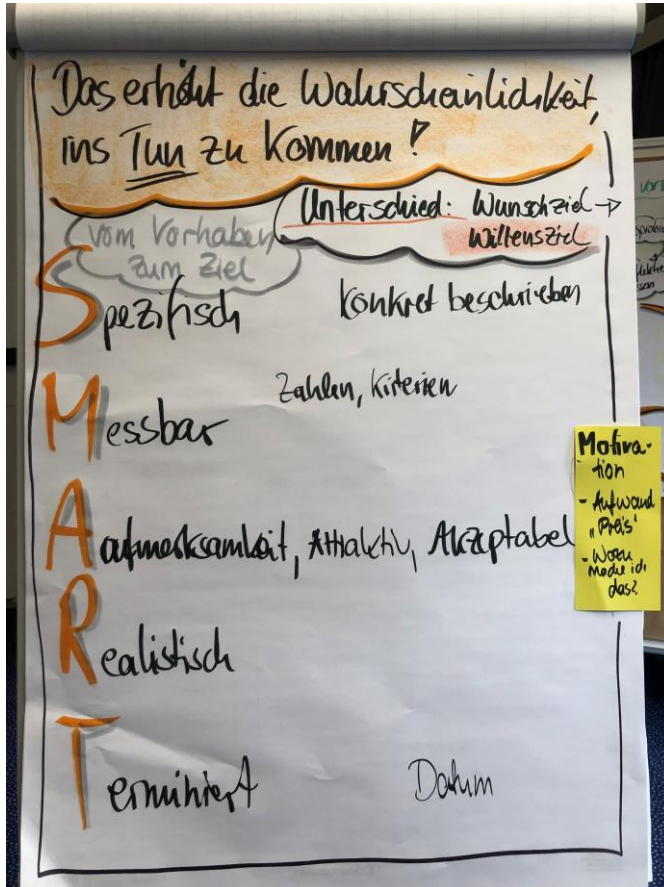 Das erhöht die Wahrscheinlichkeit,
ins Tun zu kommen!
Unterschied: Wunschziel →
Willensziel
vom Vorhaben
zum Ziel
Spezifisch Konkret beschrieben
Messbar Zahlen, Kriterien
Aufmerksamkeit, Attraktiv, Akzeptabel
Realistisch
Terminiert Datum
Motiva-
tion
- Aufwand
"Preis"
- Wozu
mache ich
das?